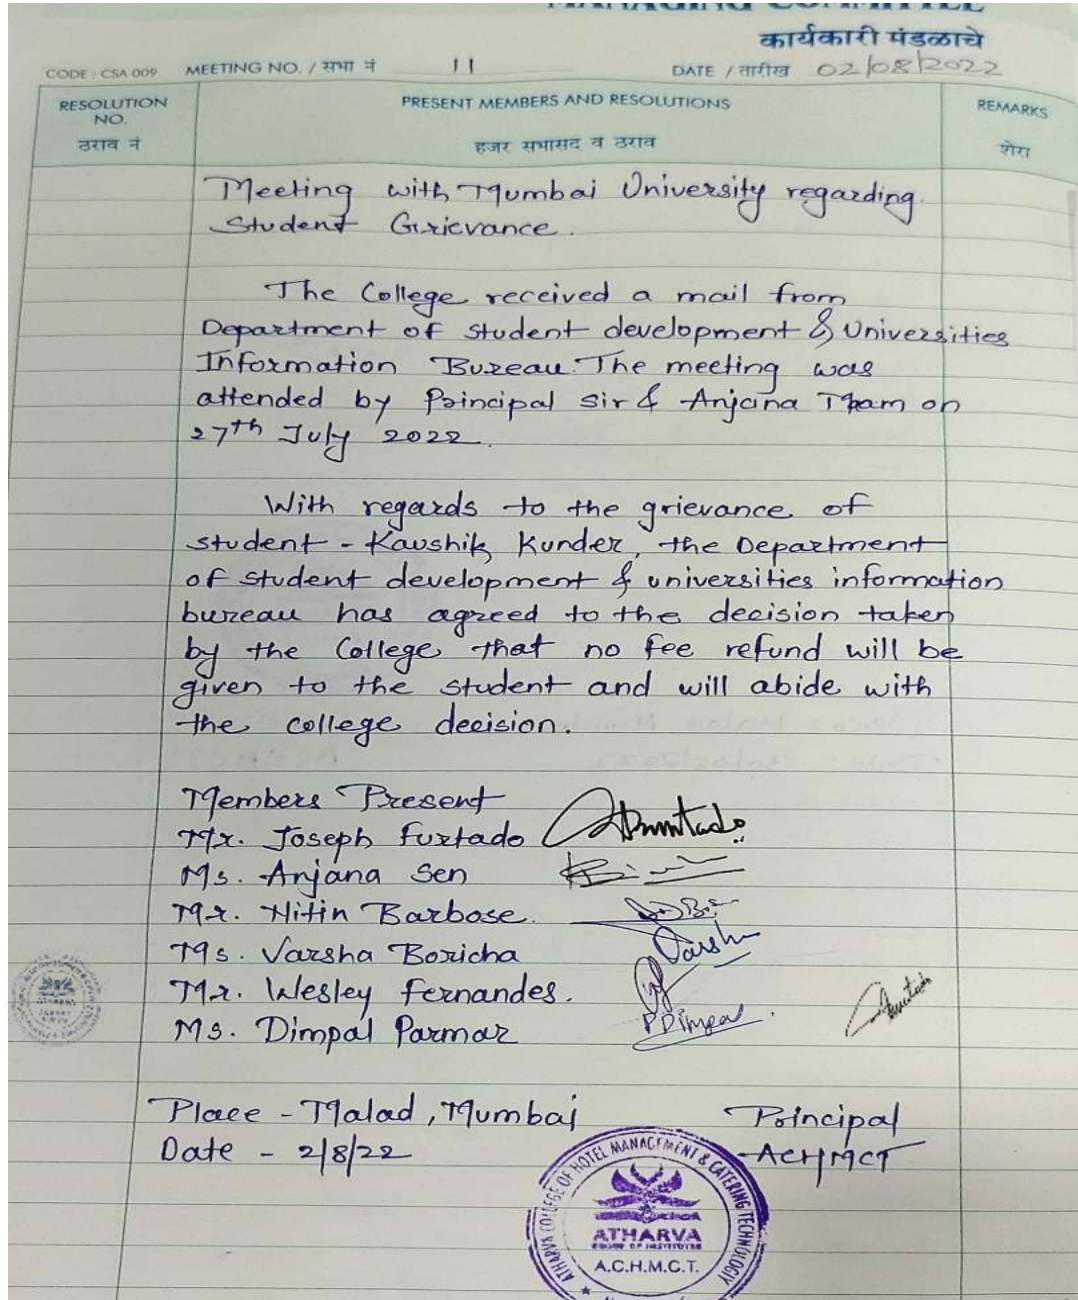 MANAGING COMMITTEE
कार्यकारी मंडळाचे
CODE : CSA 009 MEETING NO. / सभा नं 11 DATE / तारीख 02/08/2022
RESOLUTION NO. PRESENT MEMBERS AND RESOLUTIONS REMARKS
ठराव नं हजर सभासद व ठराव शेरा
Meeting with Mumbai University regarding
Student Grievance.
The College received a mail from
Department of student development & Universities
Information Bureau. The meeting was
attended by Principal sir & Anjana Mam on
27th July 2022.
With regards to the grievance of
student - Kaushik Kunder, the Department
of student development & universities information
bureau has agreed to the decision taken
by the College that no fee refund will be
given to the student and will abide with
the college decision.
Members Present
Mr. Joseph Furtado
Ms. Anjana Sen
Mr. Nitin Barbose.
Ms. Varsha Boricha Varsha
Mr. Wesley Fernandes.
Ms. Dimpal Parmar P Dimpal
Place - Malad, Mumbai Principal
Date - 2/8/22 ACHMCT
ATHARVA COLLEGE OF HOTEL MANAGEMENT & CATERING TECHNOLOGY
ATHARVA
GROUP OF INSTITUTES
A.C.H.M.C.T.